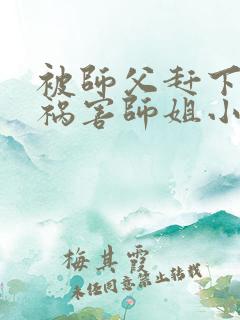 被師父赶下
禍害師姐小
梅其霞
未经同意禁止转载